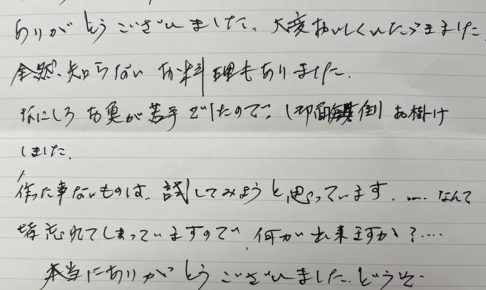 ありがとうございました。大変おいしくいただきました
全然、知らないお料理もありました。
なにしろお魚が苦手でしたので、御面倒お掛け
しました。
作った事ないものは、試してみようと思っています。……なんて
忘れてしまっていますので、何が出来ますか?....
本当にありがとうございました。どうぞ